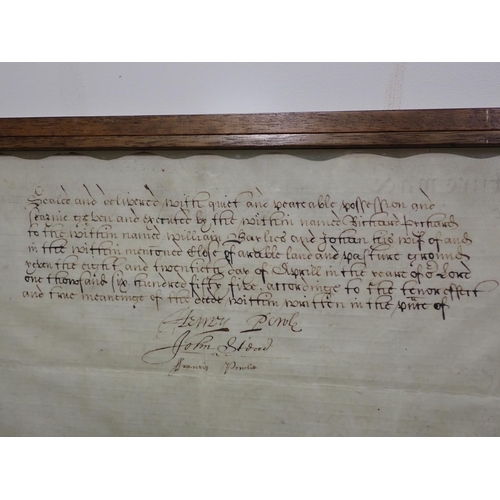 Sealed and delivered with quiet and peaceable possession and
seazine geven and executed by the within named Richard
to the within named William and Johan his wife of and
in the within menconed Close of arrable land and pasture ground
yeven the eight and twentieth day of Aprill in the yeare of or Lord
one thousand six hundred fifty five, accordinge to the tenor effect
and true meaninge of the deede within written in the pnce of
Henry
John
Francis